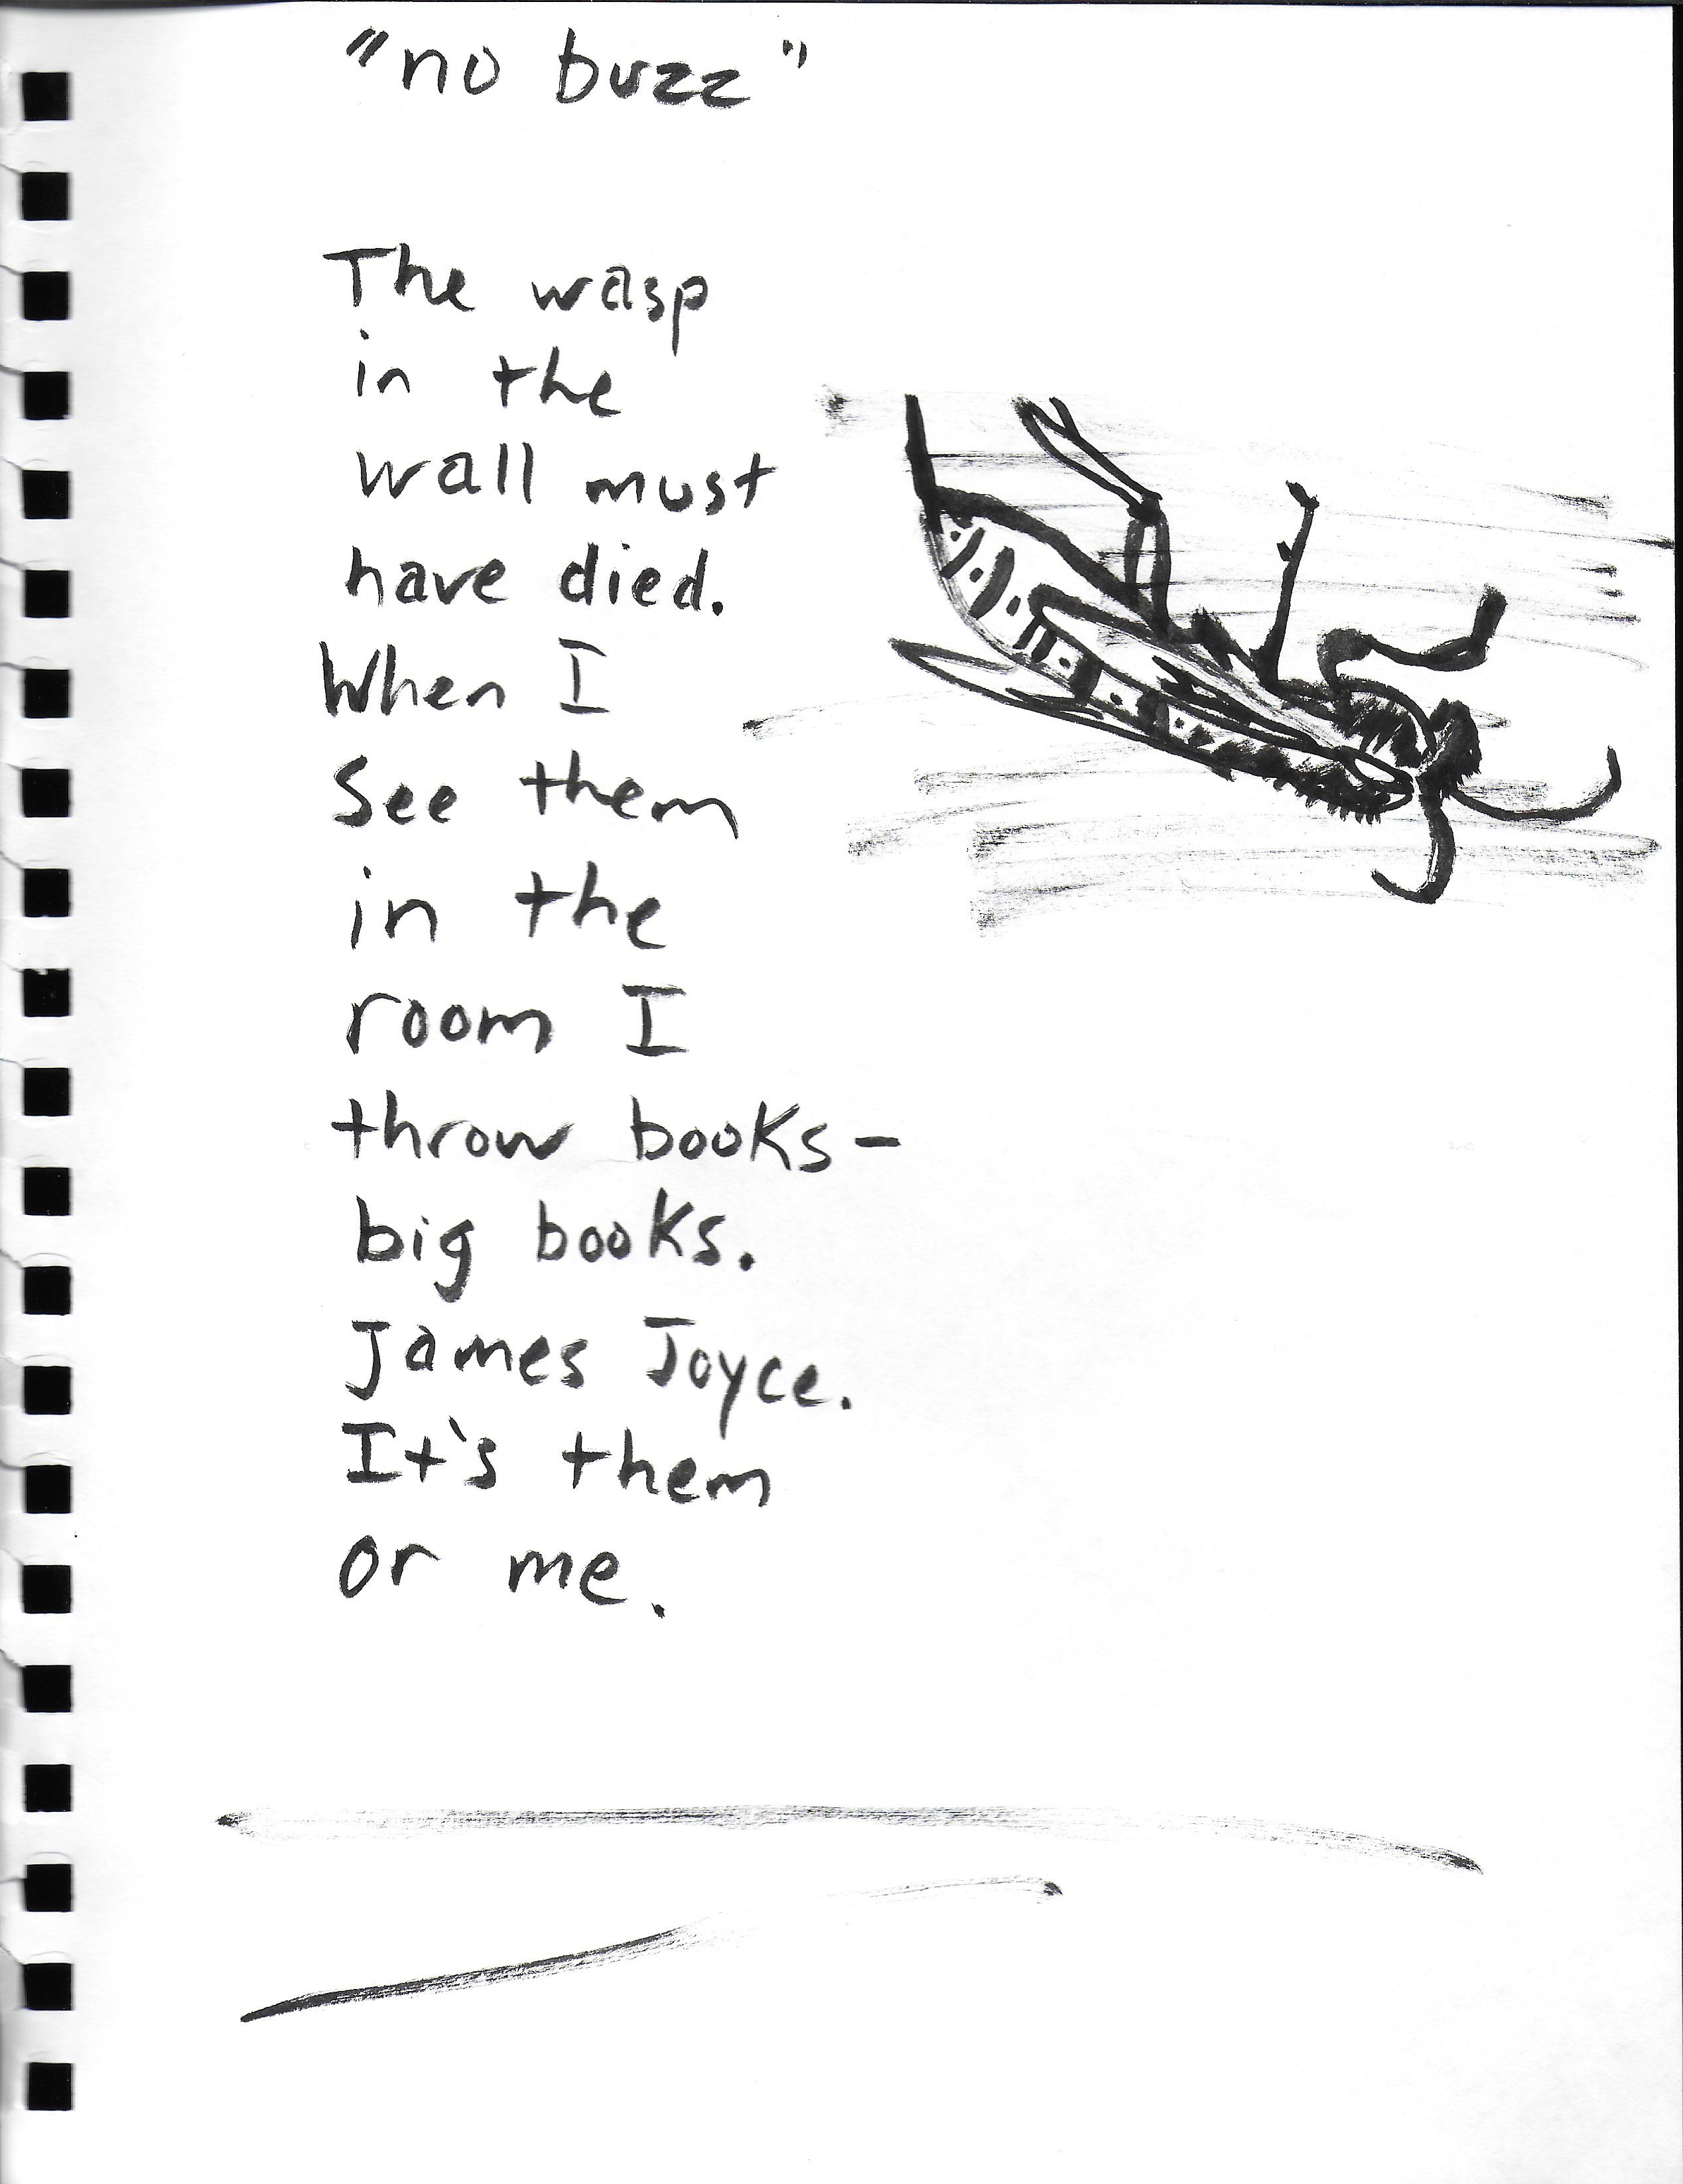 "no buzz"
The wasp
in the
wall must
have died.
When I
See them
in the
room I
throw books-
big books.
James Joyce.
It's them
or me.